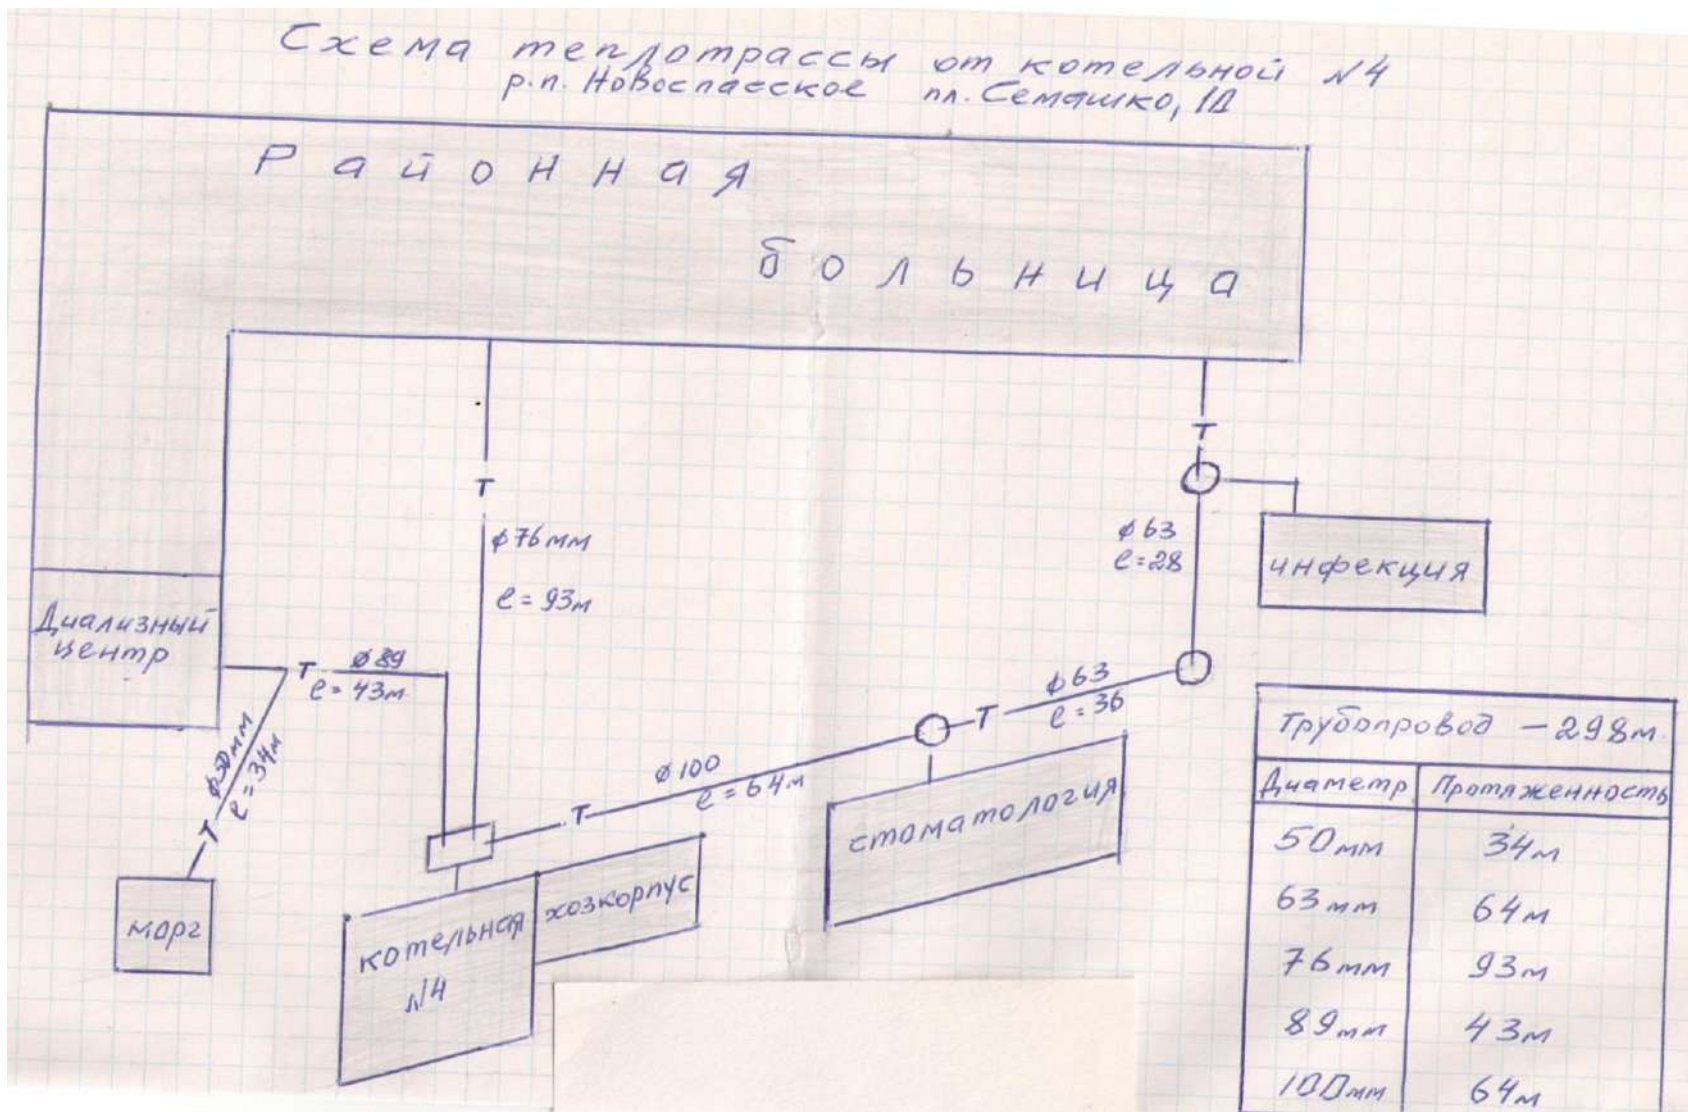 Схема теплотрассы от котельной №4
р.п. Новоспасское пл. Семашко, 1Д
Районная
больница
ф76мм
ℓ=93м
ф63
ℓ=28
инфекция
Диализный
центр
Т
Т
Т
ф89
ℓ=43м
ф63
ℓ=36
Т
ф50мм
ℓ=34м
Т
ф100
ℓ=64м
Т
стоматология
морг
котельная
№4
хозкорпус
Трубопровод - 298м.
Диаметр Протяженность
50мм 34м
63мм 64м
76мм 93м
89мм 43м
100мм 64м